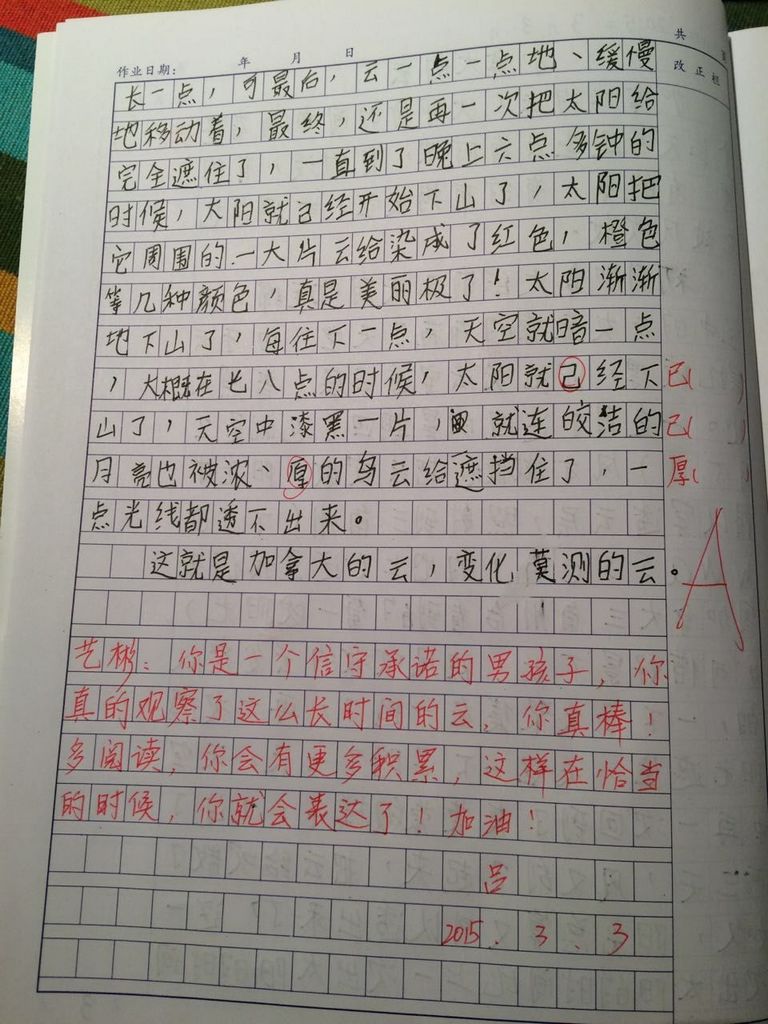 共 页
作业日期： 年 月 日
改正栏
长一点，可最后，云一点一点地、缓慢
地移动着，最终，还是再一次把太阳给
完全遮住了，一直到了晚上六点多钟的
时候，太阳就已经开始下山了，太阳把
它周围的一大片云给染成了红色，橙色
等几种颜色，真是美丽极了！太阳渐渐
地下山了，每往下一点，天空就暗一点
，大概在七八点的时候，太阳就己经下 已( )
山了，天空中漆黑一片，就连皎洁的 已( )
月亮也被浓、厚的乌云给遮挡住了，一 厚( )
点光线都透不出来。
这就是加拿大的云，变化莫测的云。
A
艺彬：你是一个信守承诺的男孩子，你
真的观察了这么长时间的云，你真棒！
多阅读，你会有更多积累，这样在恰当
的时候，你就会表达了！加油！
吕
2015．3．3